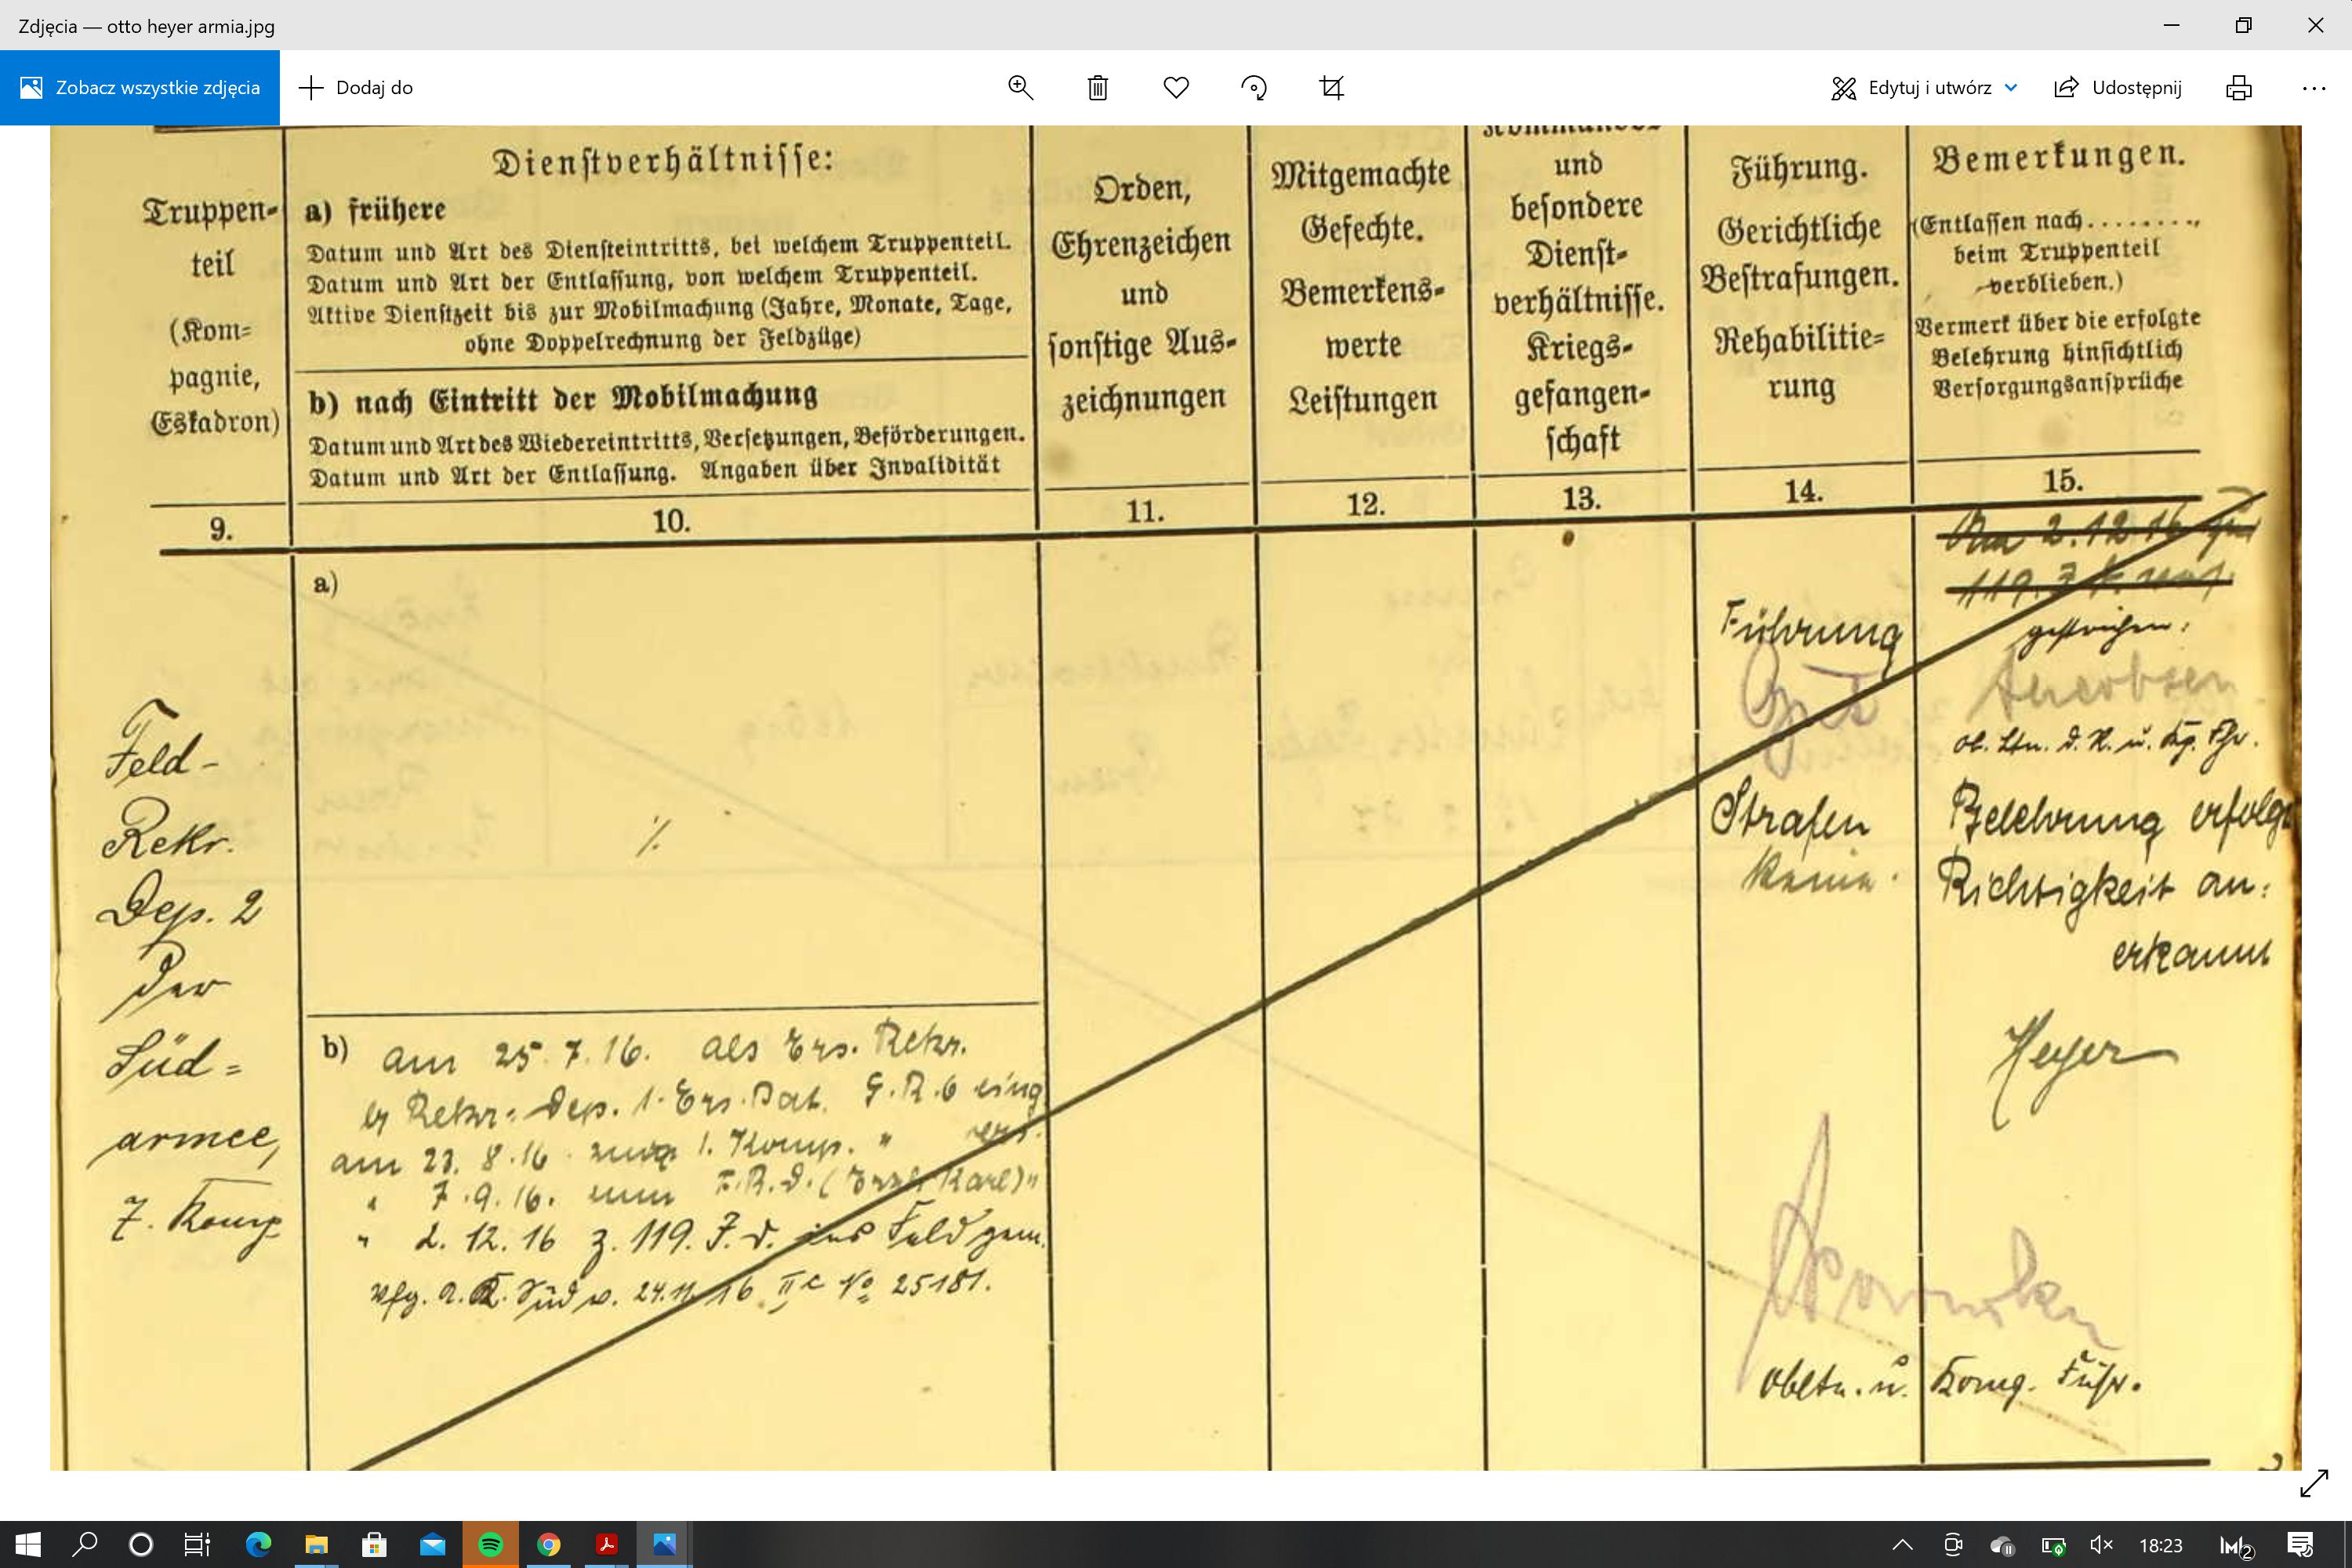 Zdjęcia — otto heyer armia.jpg
Zobacz wszystkie zdjęcia
Dodaj do
Edytuj i utwórz
Udostępnij
Truppen-
teil
(Kom-
pagnie,
Eskadron)
9.
Dienstverhältnisse:
a) frühere
Datum und Art des Diensteintritts, bei welchem Truppenteil.
Datum und Art der Entlassung, von welchem Truppenteil.
Aktive Dienstzeit bis zur Mobilmachung (Jahre, Monate, Tage,
ohne Doppelrechnung der Feldzüge)
b) nach Eintritt der Mobilmachung
Datum und Art des Wiedereintritts, Versetzungen, Beförderungen.
Datum und Art der Entlassung. Angaben über Invalidität
10.
Orden,
Ehrenzeichen
und
sonstige Aus-
zeichnungen
11.
Mitgemachte
Gefechte.
Bemerkens-
werte
Leistungen
12.
und
besondere
Dienst-
verhältnisse.
Kriegs-
gefangen-
schaft
13.
Führung.
Gerichtliche
Bestrafungen.
Rehabilitie-
rung
14.
Bemerkungen.
(Entlassen nach.........,
beim Truppenteil
verblieben.)
Vermerk über die erfolgte
Belehrung hinsichtlich
Versorgungsansprüche
15.
Feld-
Rekr.
Dep. 2
der
Süd=
armee,
7. Komp
a)
b) am 25.7.16. als Ers. Rekr.
Rekr.= Dep. 1. Ers. Bat. G.R.6 eing
am 23.8.16 1. Komp. "
" 7.9.16. zum F.R.D. (Erzh Karl) "
" 2.12.16 z. 119. J.D. ins Feld gem.
Vfg. A.K. Süd v. 24.11.16 IIc No 25181.
Führung
Gut
Strafen
keine.
Am 2.12.16 zur
119. J.
gestrichen:
Jacobsen
Ob. Ltn. d. R. u. Kp. Fhr.
Belehrung erfolgt
Richtigkeit an:
erkannt
Heyer
Obltn. u. Komp. Führ.
18:23
2